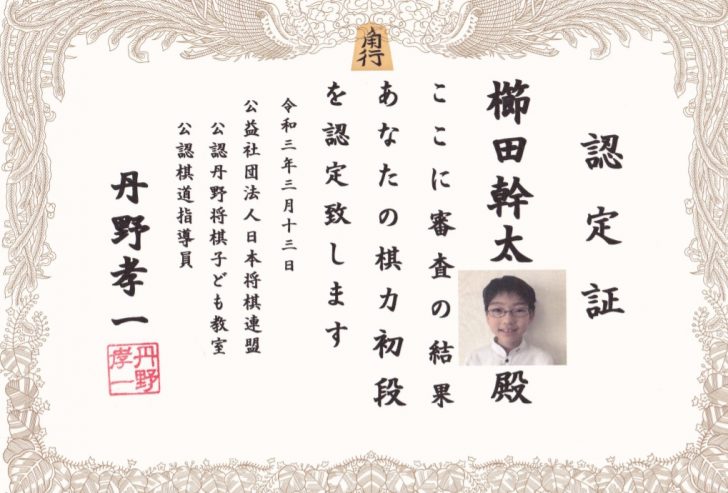 角行
認定証
櫛田幹太殿
ここに審査の結果
あなたの棋力初段
を認定致します
令和三年三月十三日
公益社団法人日本将棋連盟
公認丹野将棋子ども教室
公認棋道指導員
丹野孝一
丹野
孝一